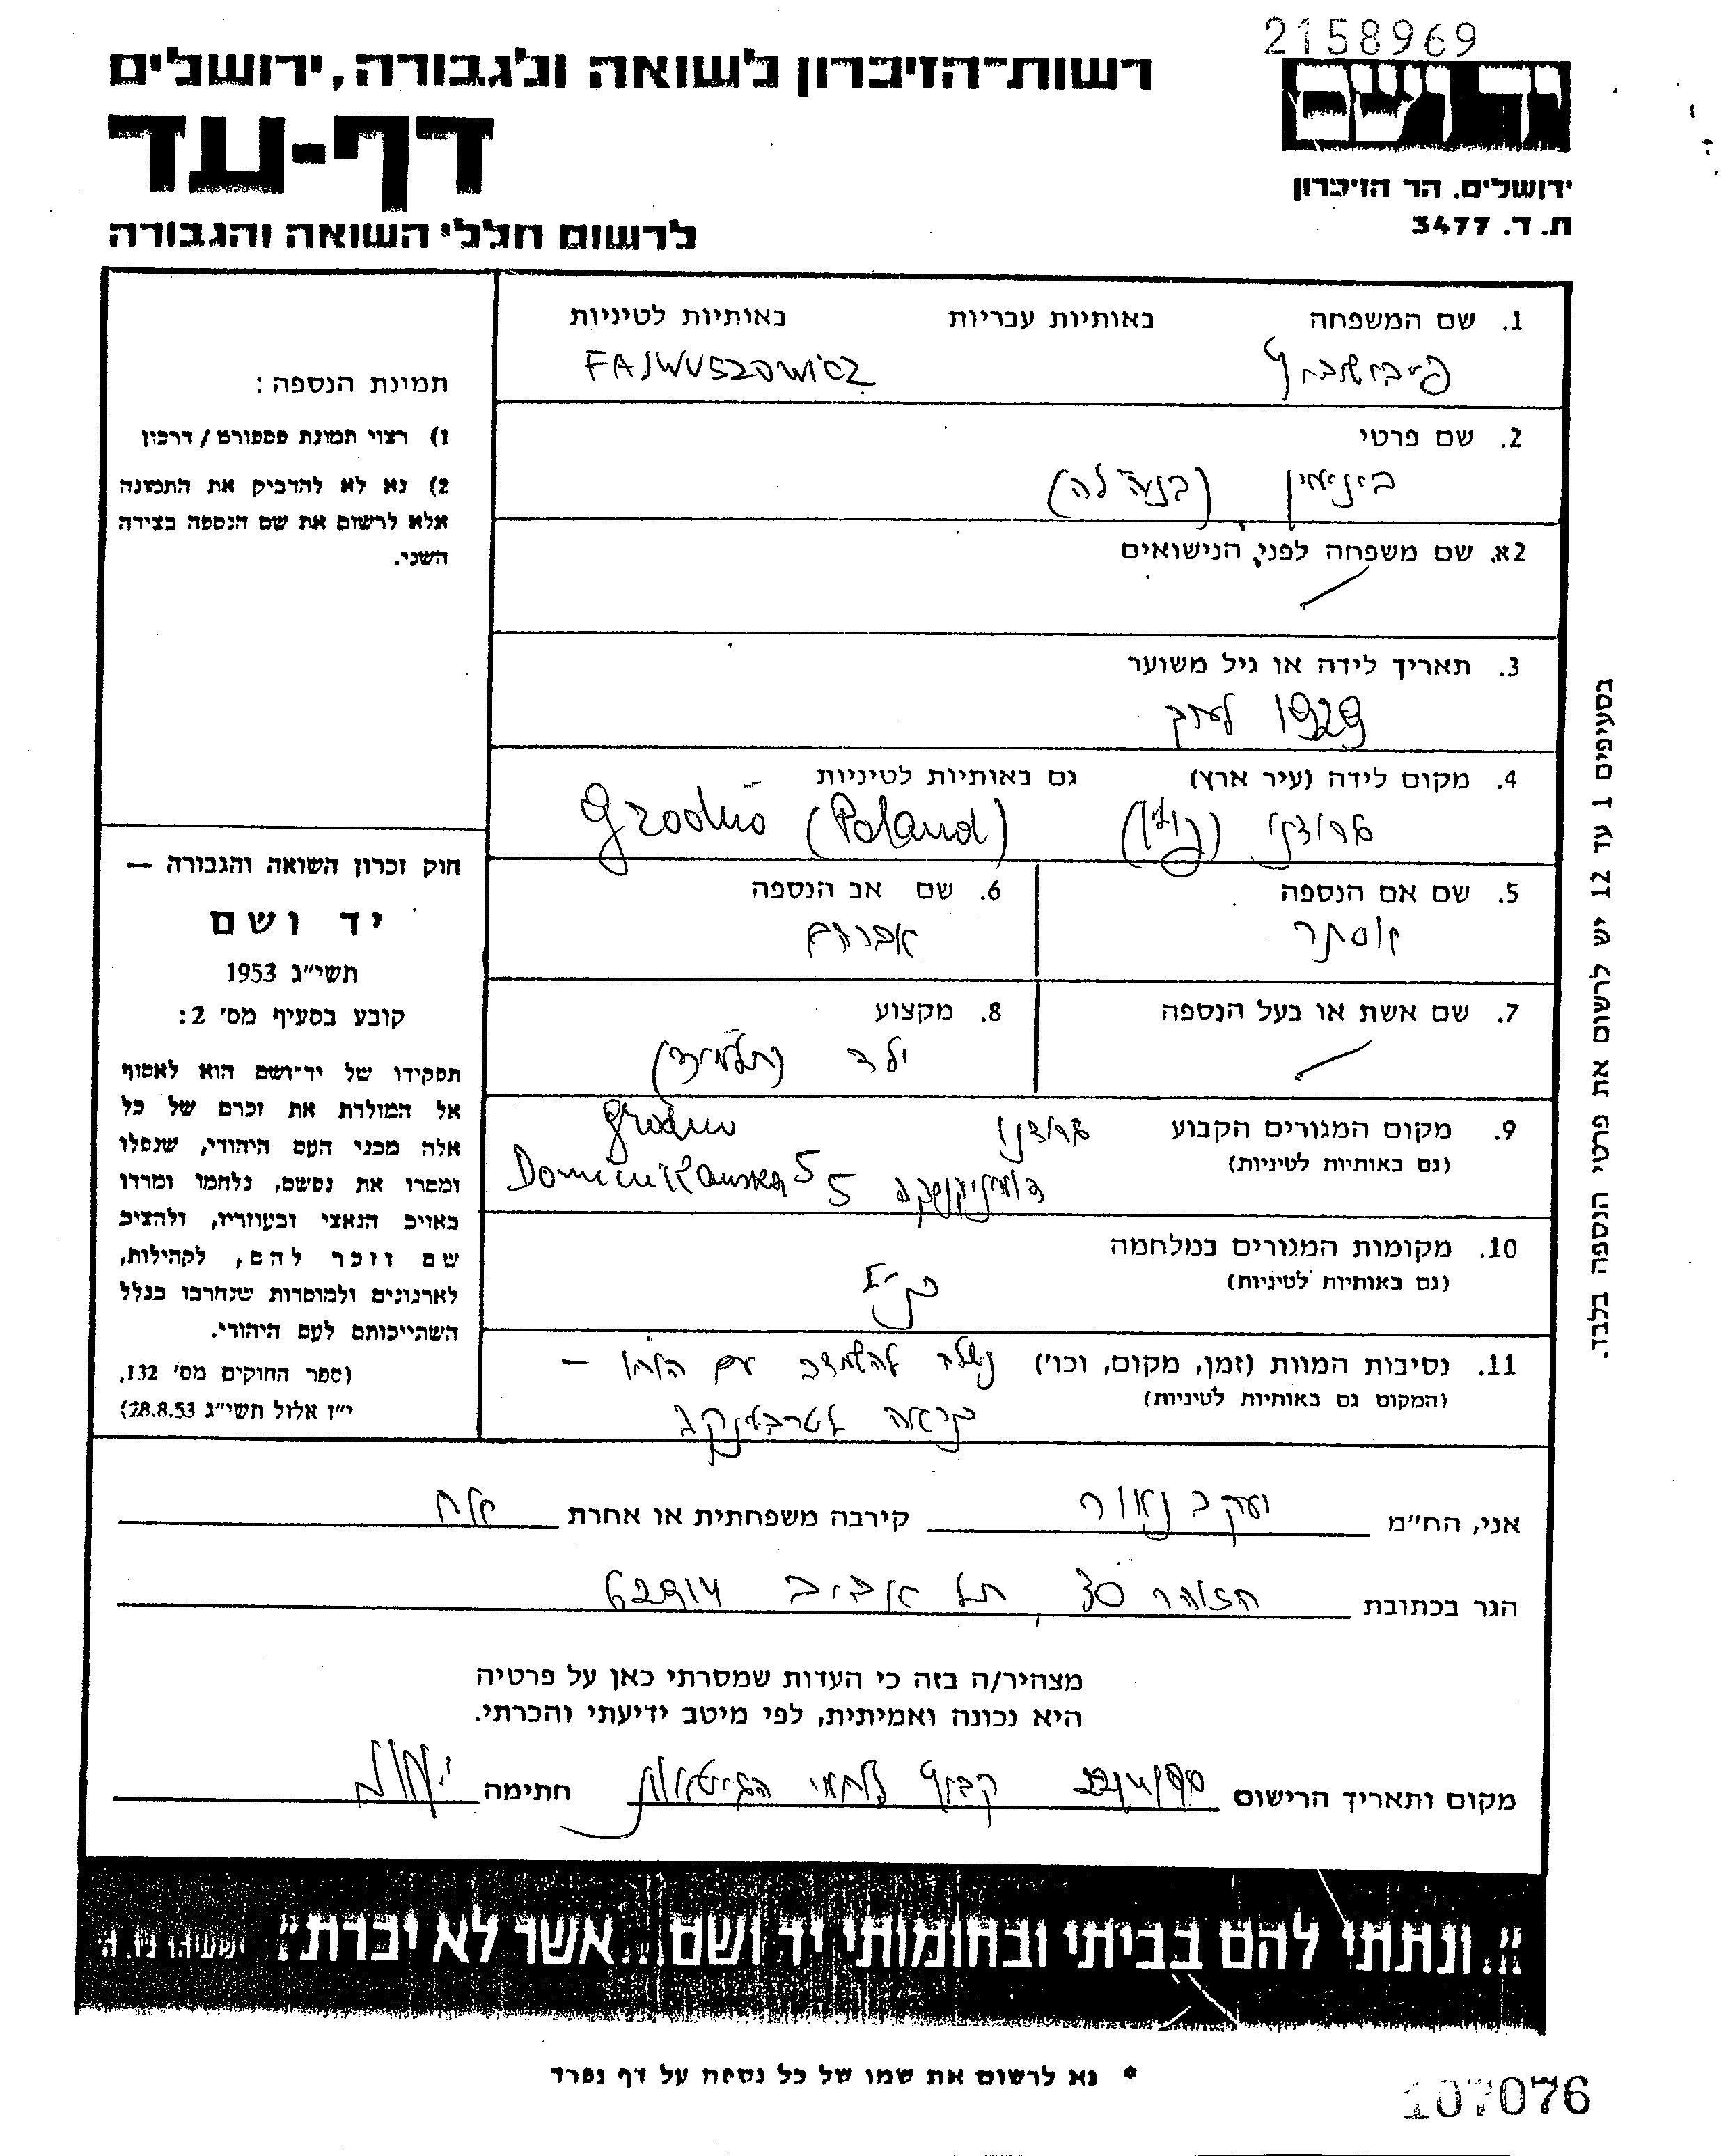 2158969
רשות-הזיכרון לשואה ולגבורה, ירושלים
יד ושם
דף-עד
ירושלים. הר הזיכרון
ת. ד. 3477
לרשום חללי השואה והגבורה
1. שם המשפחה באותיות עבריות באותיות לטיניות
פייבושוביץ FAJWUSZOWICZ
2. שם פרטי
בינימין
2א. שם משפחה לפני הנישואים
3. תאריך לידה או גיל משוער
1929 לערך
4. מקום לידה (עיר ארץ) גם באותיות לטיניות
גרודנו (פולין) Grodno (Poland)
5. שם אם הנספה 6. שם אב הנספה
אסתר אברהם
7. שם אשת או בעל הנספה 8. מקצוע
ילד (תלמיד)
9. מקום המגורים הקבוע גרודנו Grodno
(גם באותיות לטיניות)
דומיניקנסקה 5 Dominikanska 5
10. מקומות המגורים במלחמה
(גם באותיות לטיניות)
כנ"ל
11. נסיבות המוות (זמן, מקום, וכו') נשלח להשמדה עם הוריו –
(המקום גם באותיות לטיניות)
כנראה לטרבלינקה
תמונת הנספה:
1) רצוי תמונת פספורט / דרכון
2) נא לא להדביק את התמונה
אלא לרשום את שם הנספה בצידה
השני.
חוק זכרון השואה והגבורה –
יד ושם
תשי"ג 1953
קובע בסעיף מס' 2:
תפקידו של יד-ושם הוא לאסוף
אל המולדת את זכרם של כל
אלה מבני העם היהודי, שנפלו
ומסרו את נפשם, נלחמו ומרדו
באויב הנאצי ובעוזריו, ולהציב
שם וזכר להם, לקהילות,
לארגונים ולמוסדות שנחרבו בגלל
השתייכותם לעם היהודי.
(ספר החוקים מס' 132,
י"ז אלול תשי"ג 28.8.53)
בסעיפים 1 עד 12 יש לרשום את פרטי הנספה בלבד.
אני, הח"מ יעקב נאור קירבה משפחתית או אחרת אח
הגר בכתובת הזוהר 30, תל אביב 62914
מצהיר/ה בזה כי העדות שמסרתי כאן על פרטיה
היא נכונה ואמיתית, לפי מיטב ידיעתי והכרתי.
מקום ותאריך הרישום 22/4/90 קבוץ לוחמי הגיטאות חתימה
"..ונתתי להם בביתי ובחומותי יד ושם...אשר לא יכרת". ישעיהו נו ה
* נא לרשום את שמו של כל נספה על דף נפרד
107076